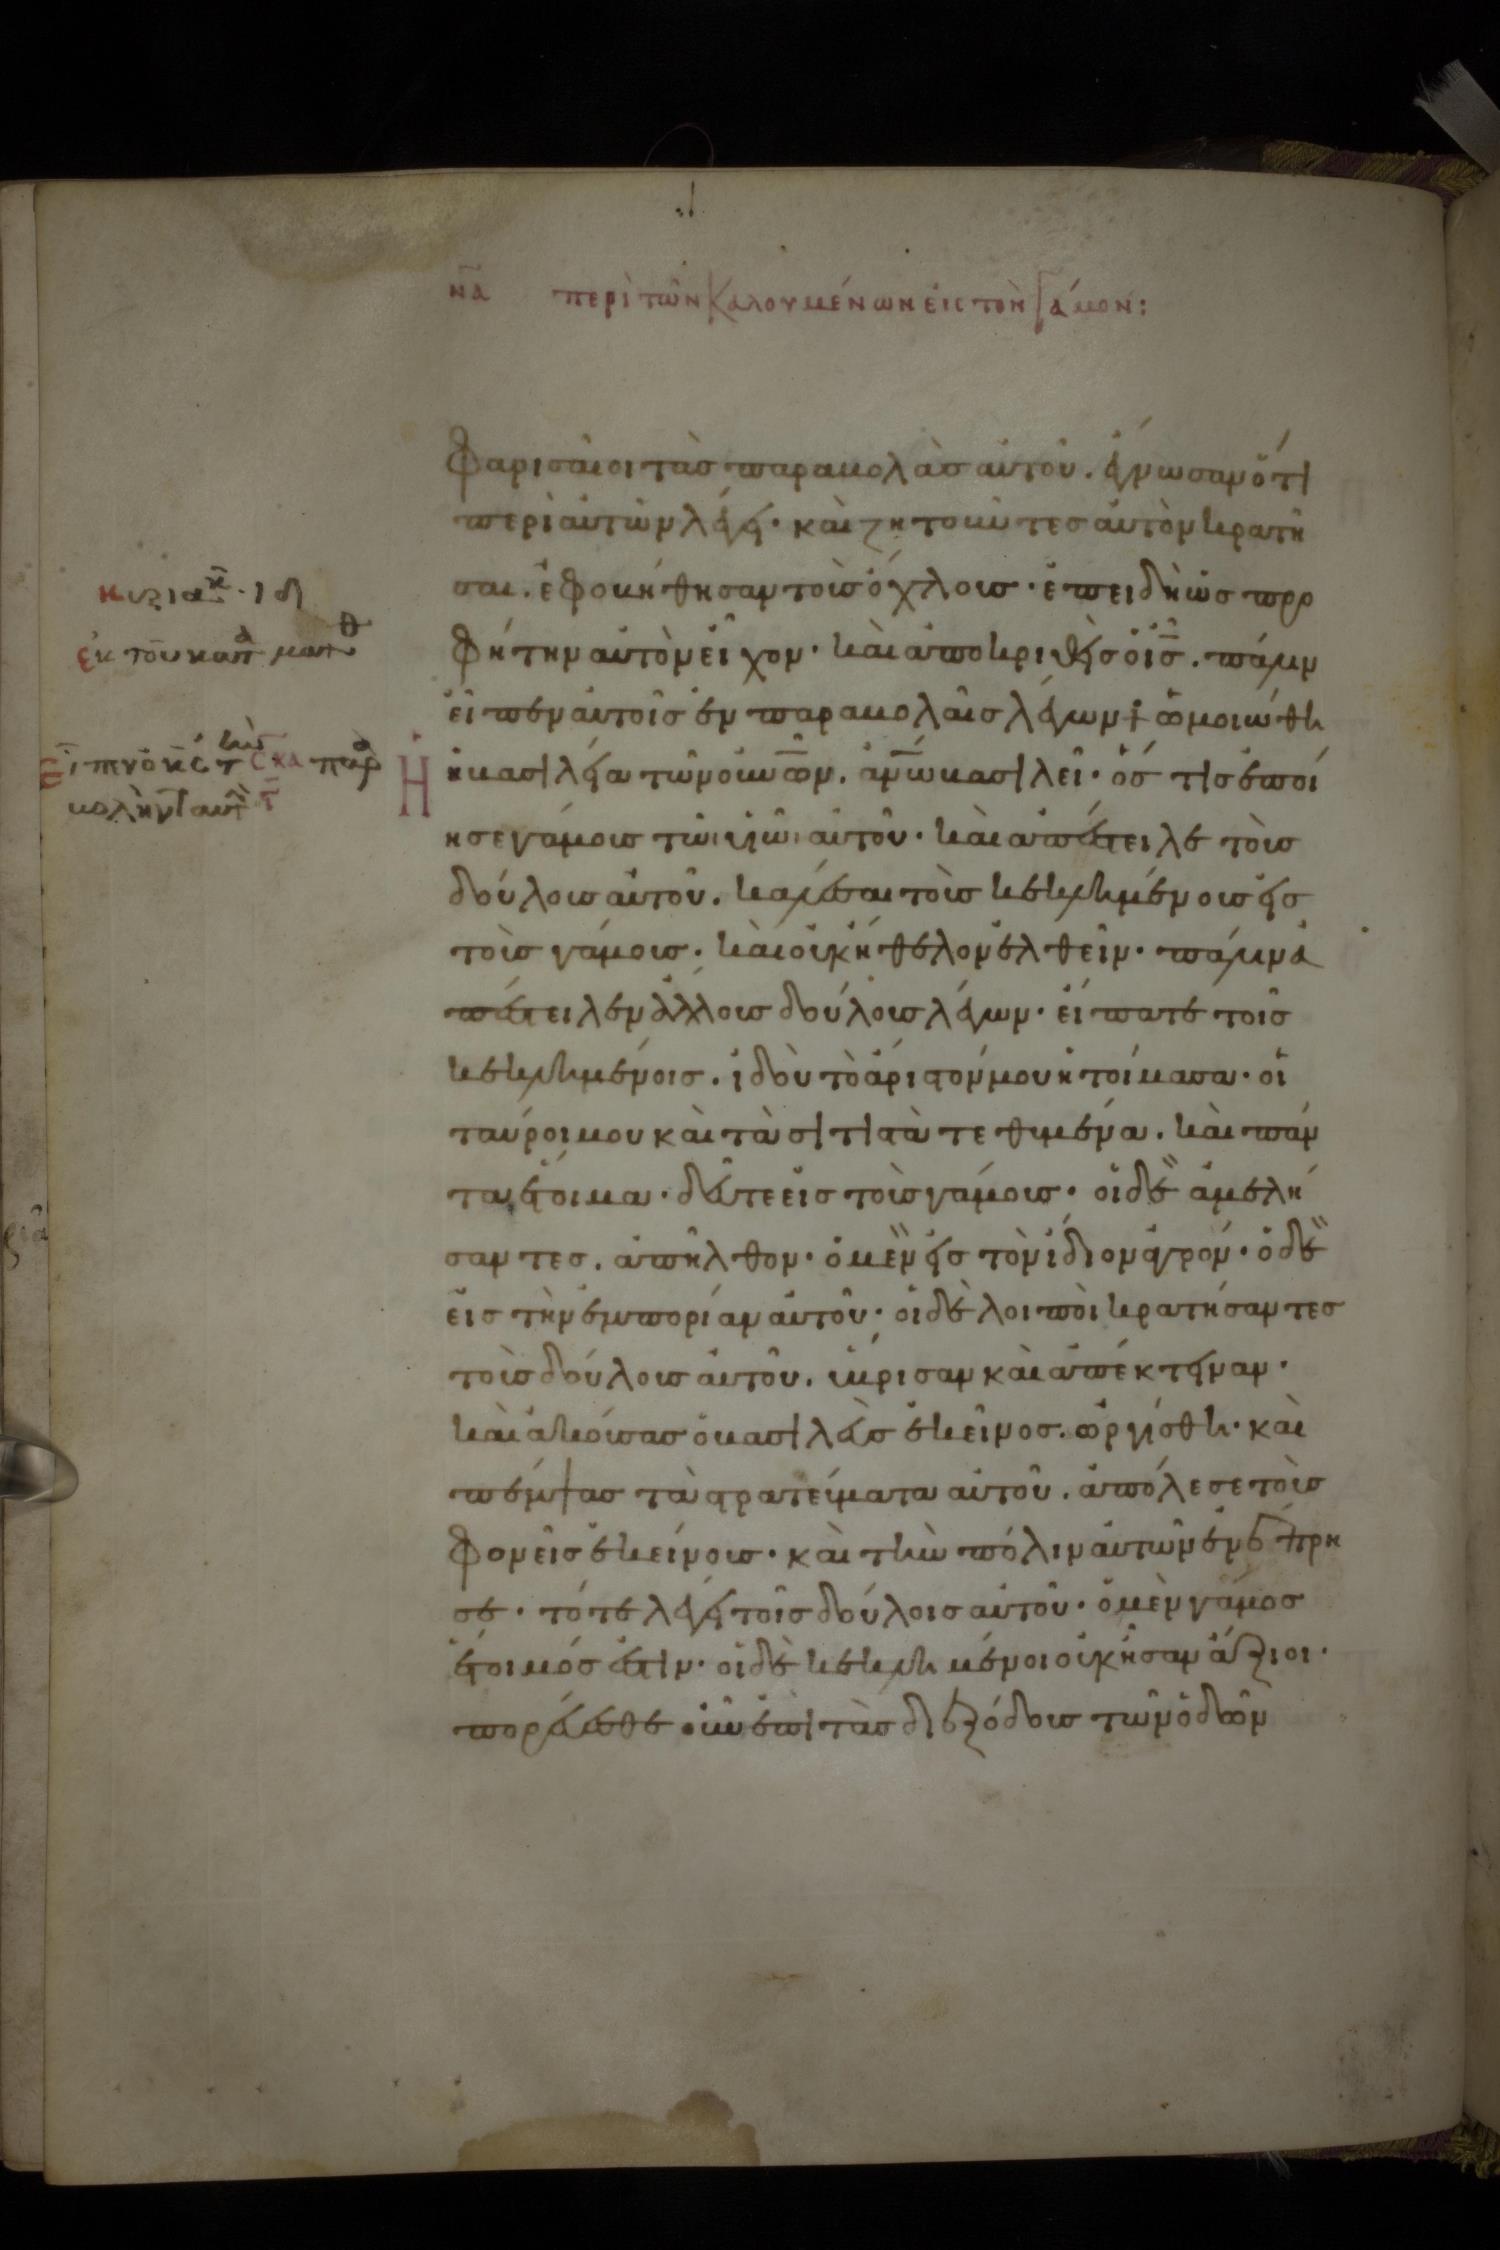 να περὶ τῶν καλουμένων εἰς τὸν γάμον:
φαρισαῖοι τὰσ παραβολὰσ αὐτοῦ. ἔγνωσαν ὅτι
περὶ αὐτῶν λέγει· καὶ ζητοῦντεσ αὐτὸν κρατῆ
σαι. ἐφοβήθησαν τοὺσ ὄχλουσ· ἐπειδὴ ὡσ προ
φήτην αὐτὸν εἶχον· καὶ ἀποκριθεὶσ ὁ ι̅σ̅. πάλιν
εἶπεν αὐτοῖσ ἐν παραβολαῖσ λέγων + ὡμοιώθη
Ἡ βασιλεία τῶν οὐ̅ν̅ω̅ν̅. α̅ν̅ω̅ βασιλεῖ· ὅσ τισ ἐποί
ησε γάμουσ τῶ υἱῶ αὐτοῦ· καὶ ἀπέστειλε τοὺσ
δούλουσ αὐτοῦ. καλέσαι τοὺσ κεκλημένουσ εἰσ
τοὺσ γάμουσ· καὶ οὐκ ἤθελον ἐλθεῖν· πάλιν ἀ
πέστειλεν ἄλλουσ δούλουσ λέγων· εἴπατε τοῖσ
κεκλημένοισ. ἰδοὺ τὸ ἄριστόν μου ἡτοίμασα· οἱ
ταύροι μου καὶ τὰ σιτιστὰ τεθυμένα. καὶ πάν
τα ἕτοιμα· δεῦτε εἰσ τοὺσ γάμουσ· οἱ δὲ ἀμελή
σαντεσ. ἀπῆλθον· ὁ μὲν εἰσ τὸν ἴδιον ἀγρόν· ὁ δὲ
εἰσ τὴν ἐμπορίαν αὐτοῦ· οἱ δὲ λοιποὶ κρατήσαντεσ
τοὺσ δούλουσ αὐτοῦ. ὕβρισαν καὶ ἀπέκτειναν·
καὶ ἀκούσασ ὁ βασιλεὺσ ἐκεῖνοσ. ὠργίσθη· καὶ
πέμψασ τὰ στρατεύματα αὐτοῦ. ἀπόλεσε τοὺσ
φονεῖσ ἐκείνουσ· καὶ τὴν πόλιν αὐτῶν ἐνέπρη
σε· τότε λέγει τοῖσ δούλοισ αὐτοῦ· ὁ μὲν γάμοσ
ἕτοιμόσ ἐστιν· οἱ δὲ κεκλημένοι οὐκ ἦσαν ἄξιοι·
πορεύεσθε οὖν ἐπὶ τὰσ διεξόδουσ τῶν ὁδῶν
κυριακ ιδ
ἐκ τοῦ κατ ματθ